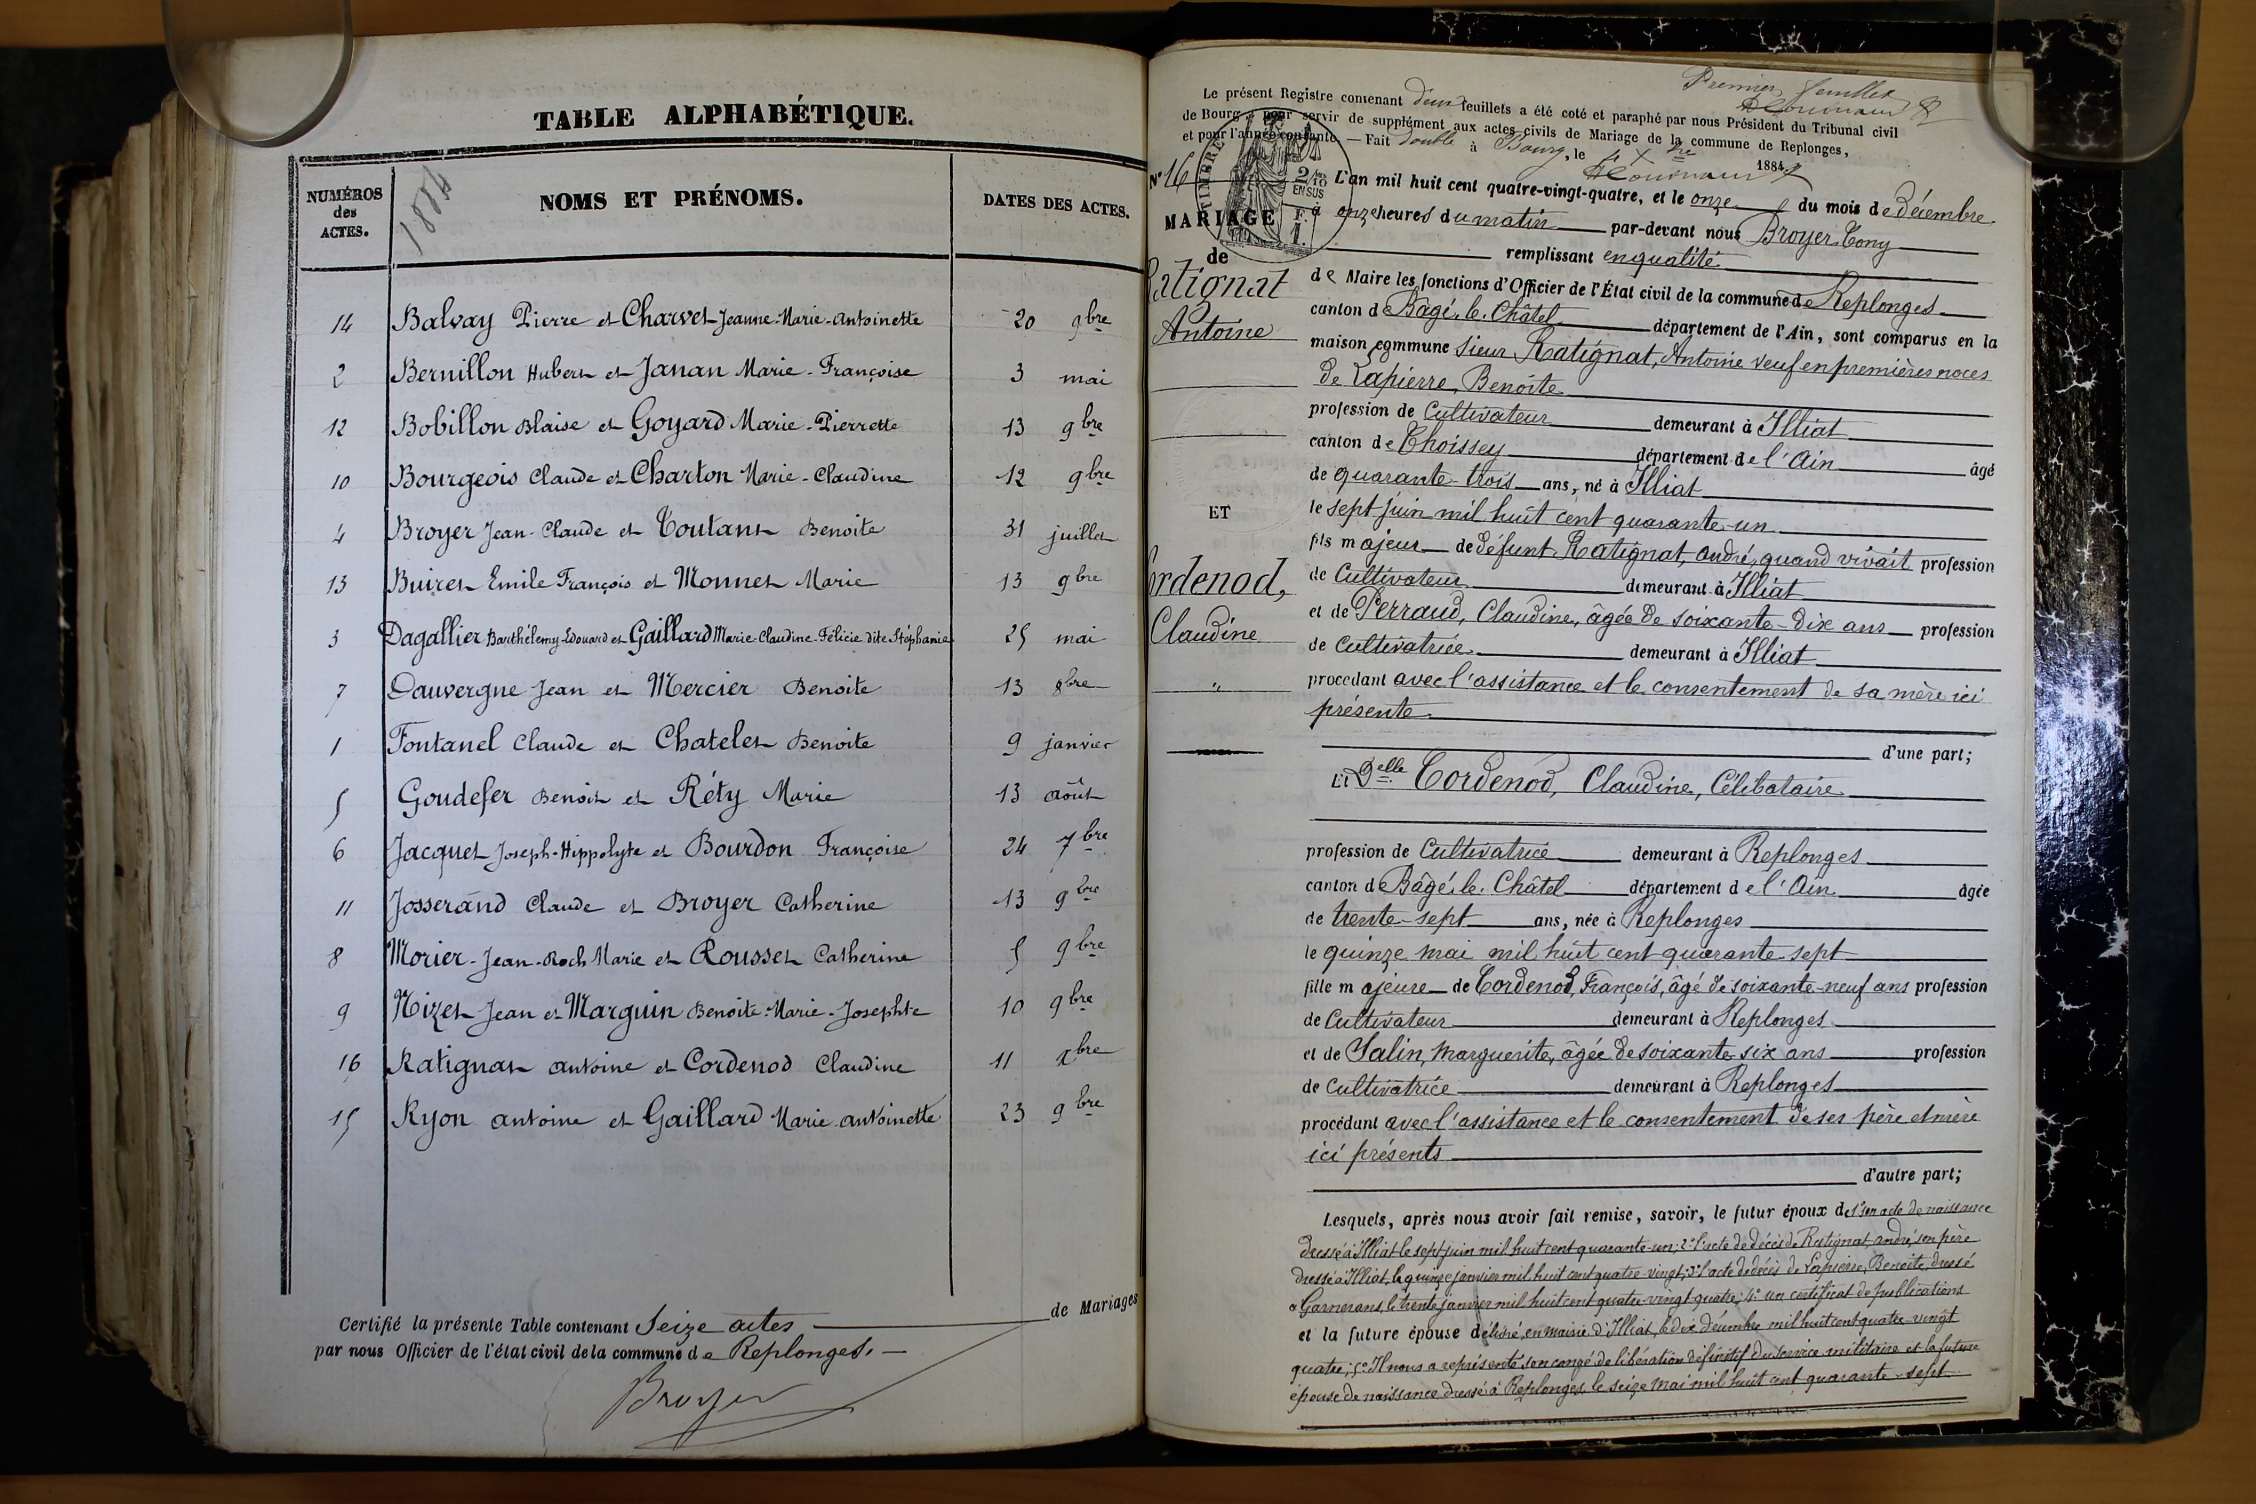 TABLE ALPHABÉTIQUE.
NUMÉROS des ACTES.
1884
NOMS ET PRÉNOMS.
DATES DES ACTES.
14 Balvay Pierre et Charvet Jeanne-Marie-Antoinette 20 9bre
2 Bernillon Hubert et Janan Marie-Françoise 3 mai
12 Bobillon Blaise et Goyard Marie-Pierrette 13 9bre
10 Bourgeois Claude et Charton Marie-Claudine 12 9bre
4 Broyer Jean-Claude et Toutant Benoite 31 juillet
13 Buiret Emile François et Monnet Marie 13 9bre
3 Dagallier Barthélemy-Edouard et Gaillard Marie-Claudine-Félicie dite Stéphanie 25 mai
7 Dauvergne Jean et Mercier Benoite 13 8bre
1 Fontanel Claude et Chatelet Benoite 9 janvier
5 Goudefer Benoit et Réty Marie 13 août
6 Jacquet Joseph-Hippolyte et Bourdon Françoise 24 7bre
11 Josserand Claude et Broyer Catherine 13 9bre
8 Morier-Jean-Roch Marie et Rousset Catherine 5 9bre
9 Nizet Jean et Marguin Benoite-Marie-Josephte 10 9bre
16 Ratignat Antoine et Cordenod Claudine 11 Xbre
15 Ryon Antoine et Gaillard Marie Antoinette 23 9bre
Certifié la présente Table contenant Seize actes de Mariages
par nous Officier de l'état civil de la commune de Replonges.
Broyer
Premier feuillet
Le présent Registre contenant deux feuillets a été coté et paraphé par nous Président du Tribunal civil
de Bourg pour servir de supplément aux actes civils de Mariage de la commune de Replonges,
et pour l'année courante. — Fait double à Bourg, le 4 Xbre 1884.
TIMBRE
2/10 EN SUS
F. 1.
No 16
MARIAGE
de
Ratignat
Antoine
ET
Cordenod,
Claudine
L'an mil huit cent quatre-vingt-quatre, et le onze du mois de décembre
à onze heures du matin par-devant nous Broyer Tony
remplissant en qualité
de Maire les fonctions d'Officier de l'État civil de la commune de Replonges
canton de Bâgé-le-Châtel département de l'Ain, sont comparus en la
maison commune Sieur Ratignat, Antoine veuf en premières noces
de Lapierre, Benoîte
profession de Cultivateur demeurant à Illiat
canton de Thoissey département de l'Ain âgé
de quarante-trois ans, né à Illiat
le sept juin mil huit cent quarante-un
fils majeur de défunt Ratignat, André, quand vivait profession
de Cultivateur demeurant à Illiat
et de Perraud, Claudine, âgée de soixante-dix ans profession
de Cultivatrice demeurant à Illiat
procédant avec l'assistance et le consentement de sa mère ici
présente
d'une part;
Et Delle Cordenod, Claudine, Célibataire
profession de Cultivatrice demeurant à Replonges
canton de Bâgé-le-Châtel département de l'Ain âgée
de trente-sept ans, née à Replonges
le quinze mai mil huit cent quarante-sept
fille majeure de Cordenod, François, âgé de soixante-neuf ans profession
de Cultivateur demeurant à Replonges
et de Salin, Marguerite, âgée de soixante-six ans profession
de Cultivatrice demeurant à Replonges
procédant avec l'assistance et le consentement de ses père et mère
ici présents
d'autre part;
Lesquels, après nous avoir fait remise, savoir, le futur époux de 1° son acte de naissance
dressé à Illiat le sept juin mil huit cent quarante-un; 2° l'acte de décès de Ratignat, André, son père
dressé à Illiat, le quinze janvier mil huit cent quatre-vingt; 3° l'acte de décès de Lapierre, Benoîte, dressé
à Garnerans, le trente janvier mil huit cent quatre-vingt-quatre; 4° un certificat de publications
et la future épouse délivré, en mairie d'Illiat, le dix décembre mil huit cent quatre-vingt
quatre; 5° Il nous a représenté son congé de libération définitif du service militaire et la future
épouse de naissance dressé à Replonges le seize mai mil huit cent quarante-sept